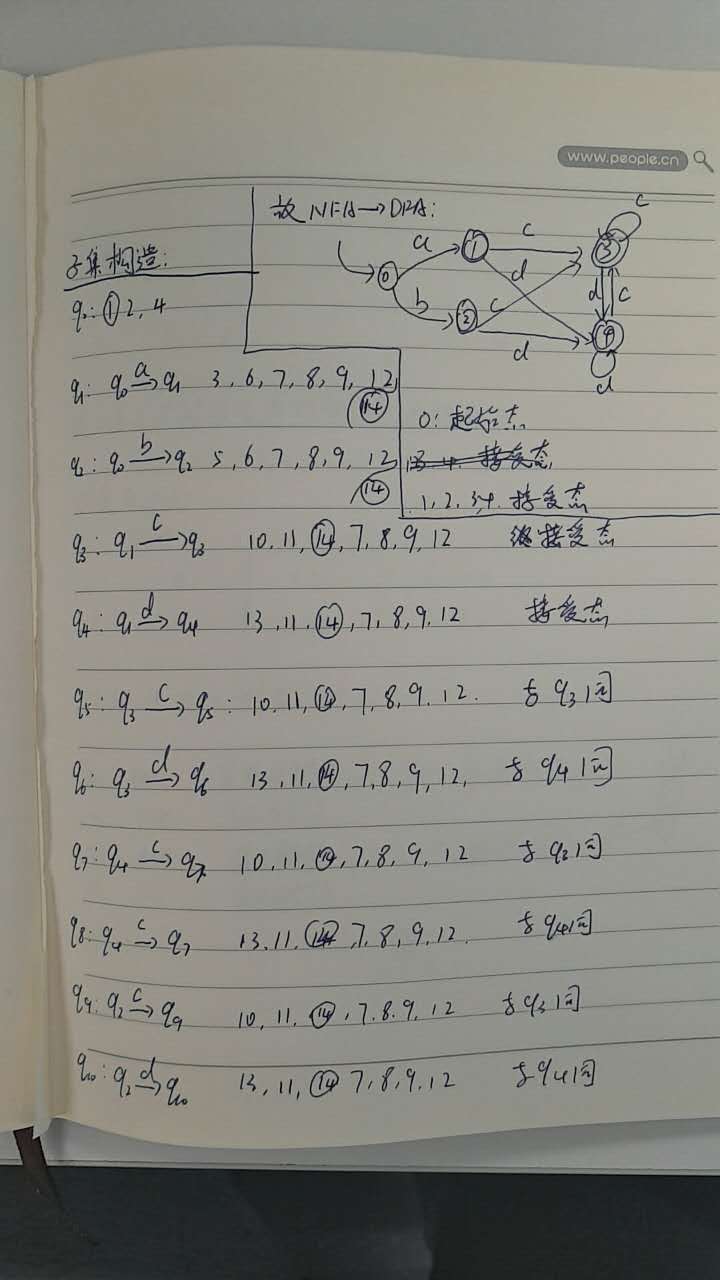 www.people.cn
故NFA→DFA:
子集构造:
a
c
c
0
1
3
d
d
c
b
c
2
4
d
d
q₀: ① 2, 4
q₁: q₀ a→ q₁ 3, 6, 7, 8, 9, 12,
⑭
0: 起始态
q₂: q₀ b→ q₂ 5, 6, 7, 8, 9, 12
⑭
1, 2, 3, 4. 接受态
q₃: q₁ c→ q₃ 10, 11, ⑭, 7, 8, 9, 12 接受态
q₄: q₁ d→ q₄ 13, 11, ⑭, 7, 8, 9, 12 接受态
q₅: q₃ c→ q₅: 10, 11, ⑭, 7, 8, 9, 12. 与q₃同
q₆: q₃ d→ q₆ 13, 11, ⑭, 7, 8, 9, 12, 与q₄同
q₇: q₄ c→ q₇ 10, 11, ⑭, 7, 8, 9, 12 与q₃同
q₈: q₄ c→ q₇ 13, 11, ⑭, 7, 8, 9, 12. 与q₄同
q₉: q₂ c→ q₉ 10, 11, ⑭, 7, 8, 9, 12 与q₃同
q₁₀: q₂ d→ q₁₀ 13, 11, ⑭ 7, 8, 9, 12 与q₄同